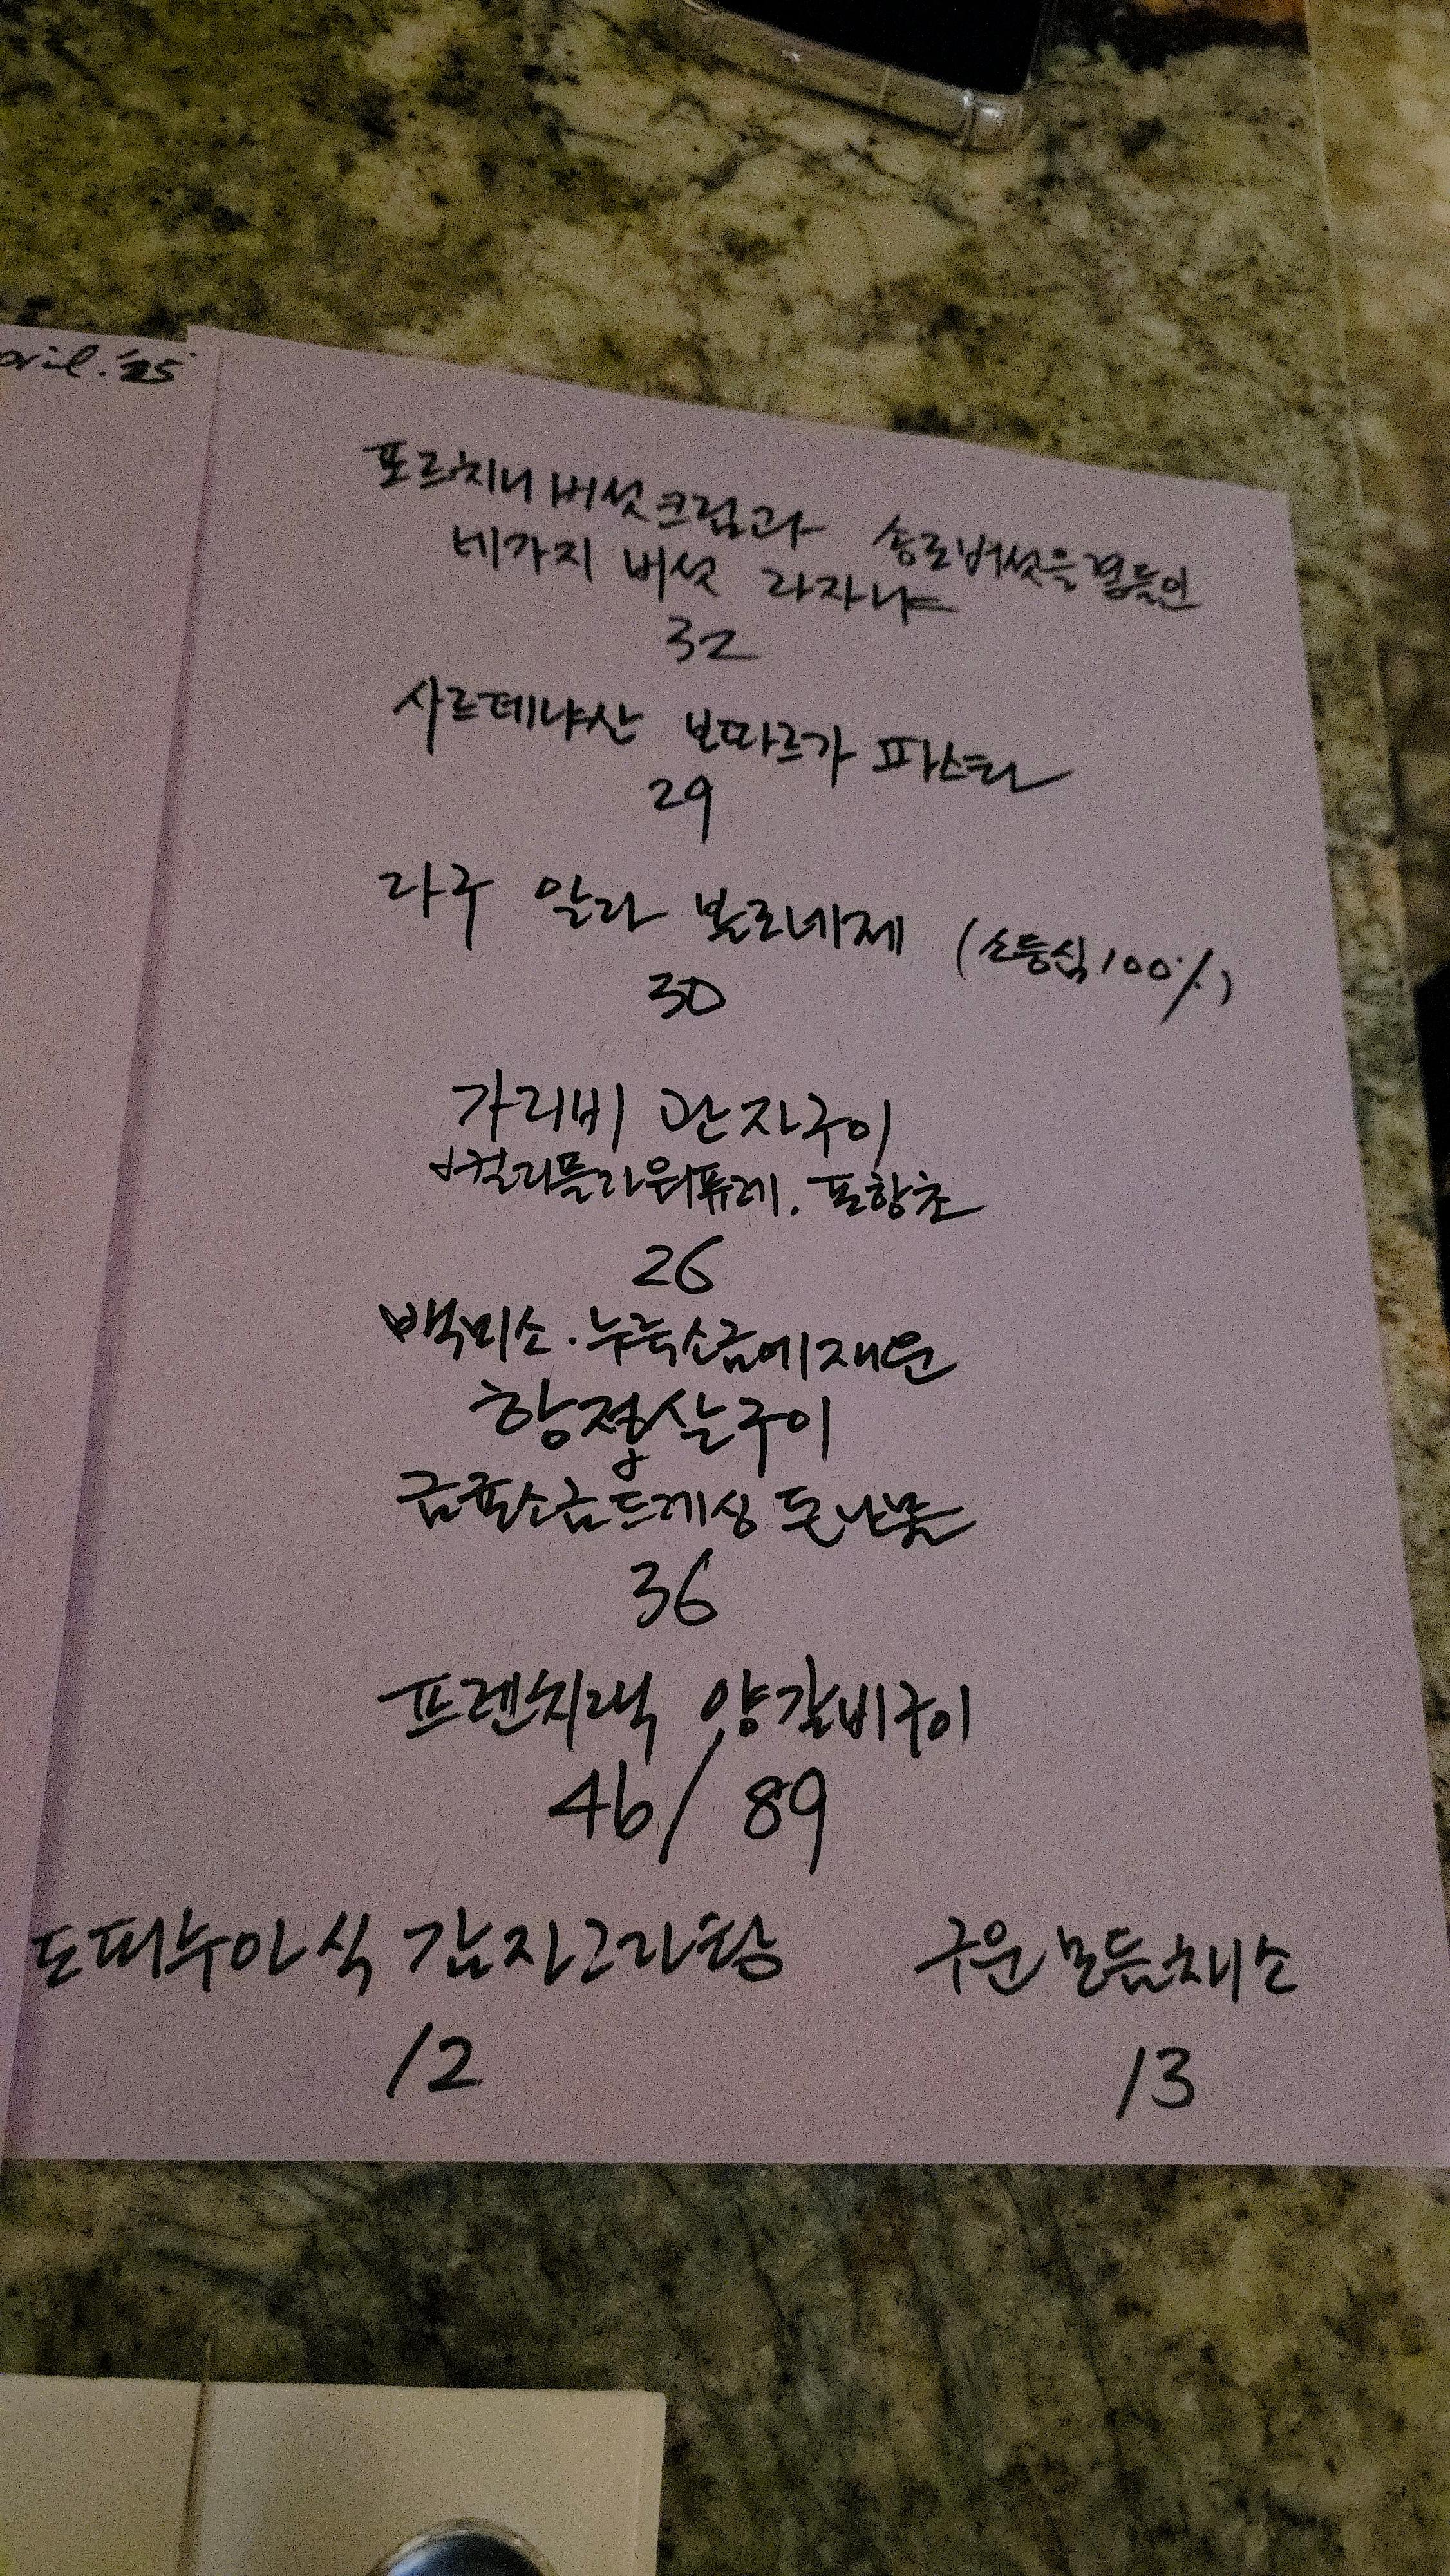 pril. '25
포르치니버섯크림과 송로버섯을곁들인
네가지 버섯 라자냐
32
사르데냐산 보따르가 파스타
29
라구 알라 볼로네제 (소등심100%)
30
가리비 관자구이
컬리플라워퓨레. 포항초
26
백미소.누룩소금에재운
항정살구이
금귤소금드레싱 돌나물
36
프렌치랙 양갈비구이
46/ 89
도피누아식 감자그라탕 구운모듬채소
12 13